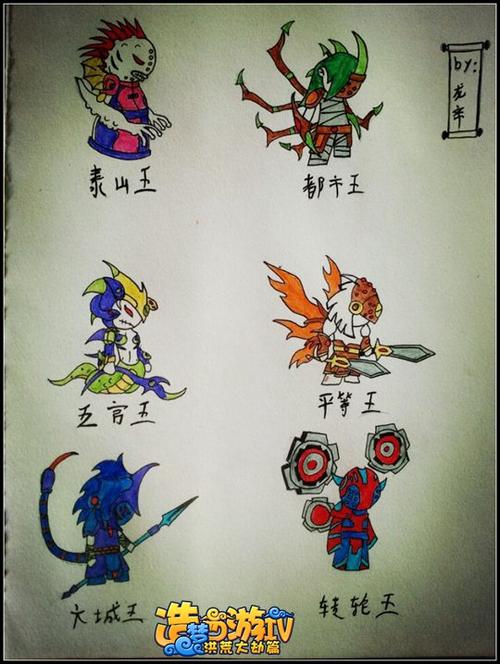 by:
龙帝
泰山王
都市王
五官王
平等王
大城王
转轮王
造梦西游IV
洪荒大劫篇